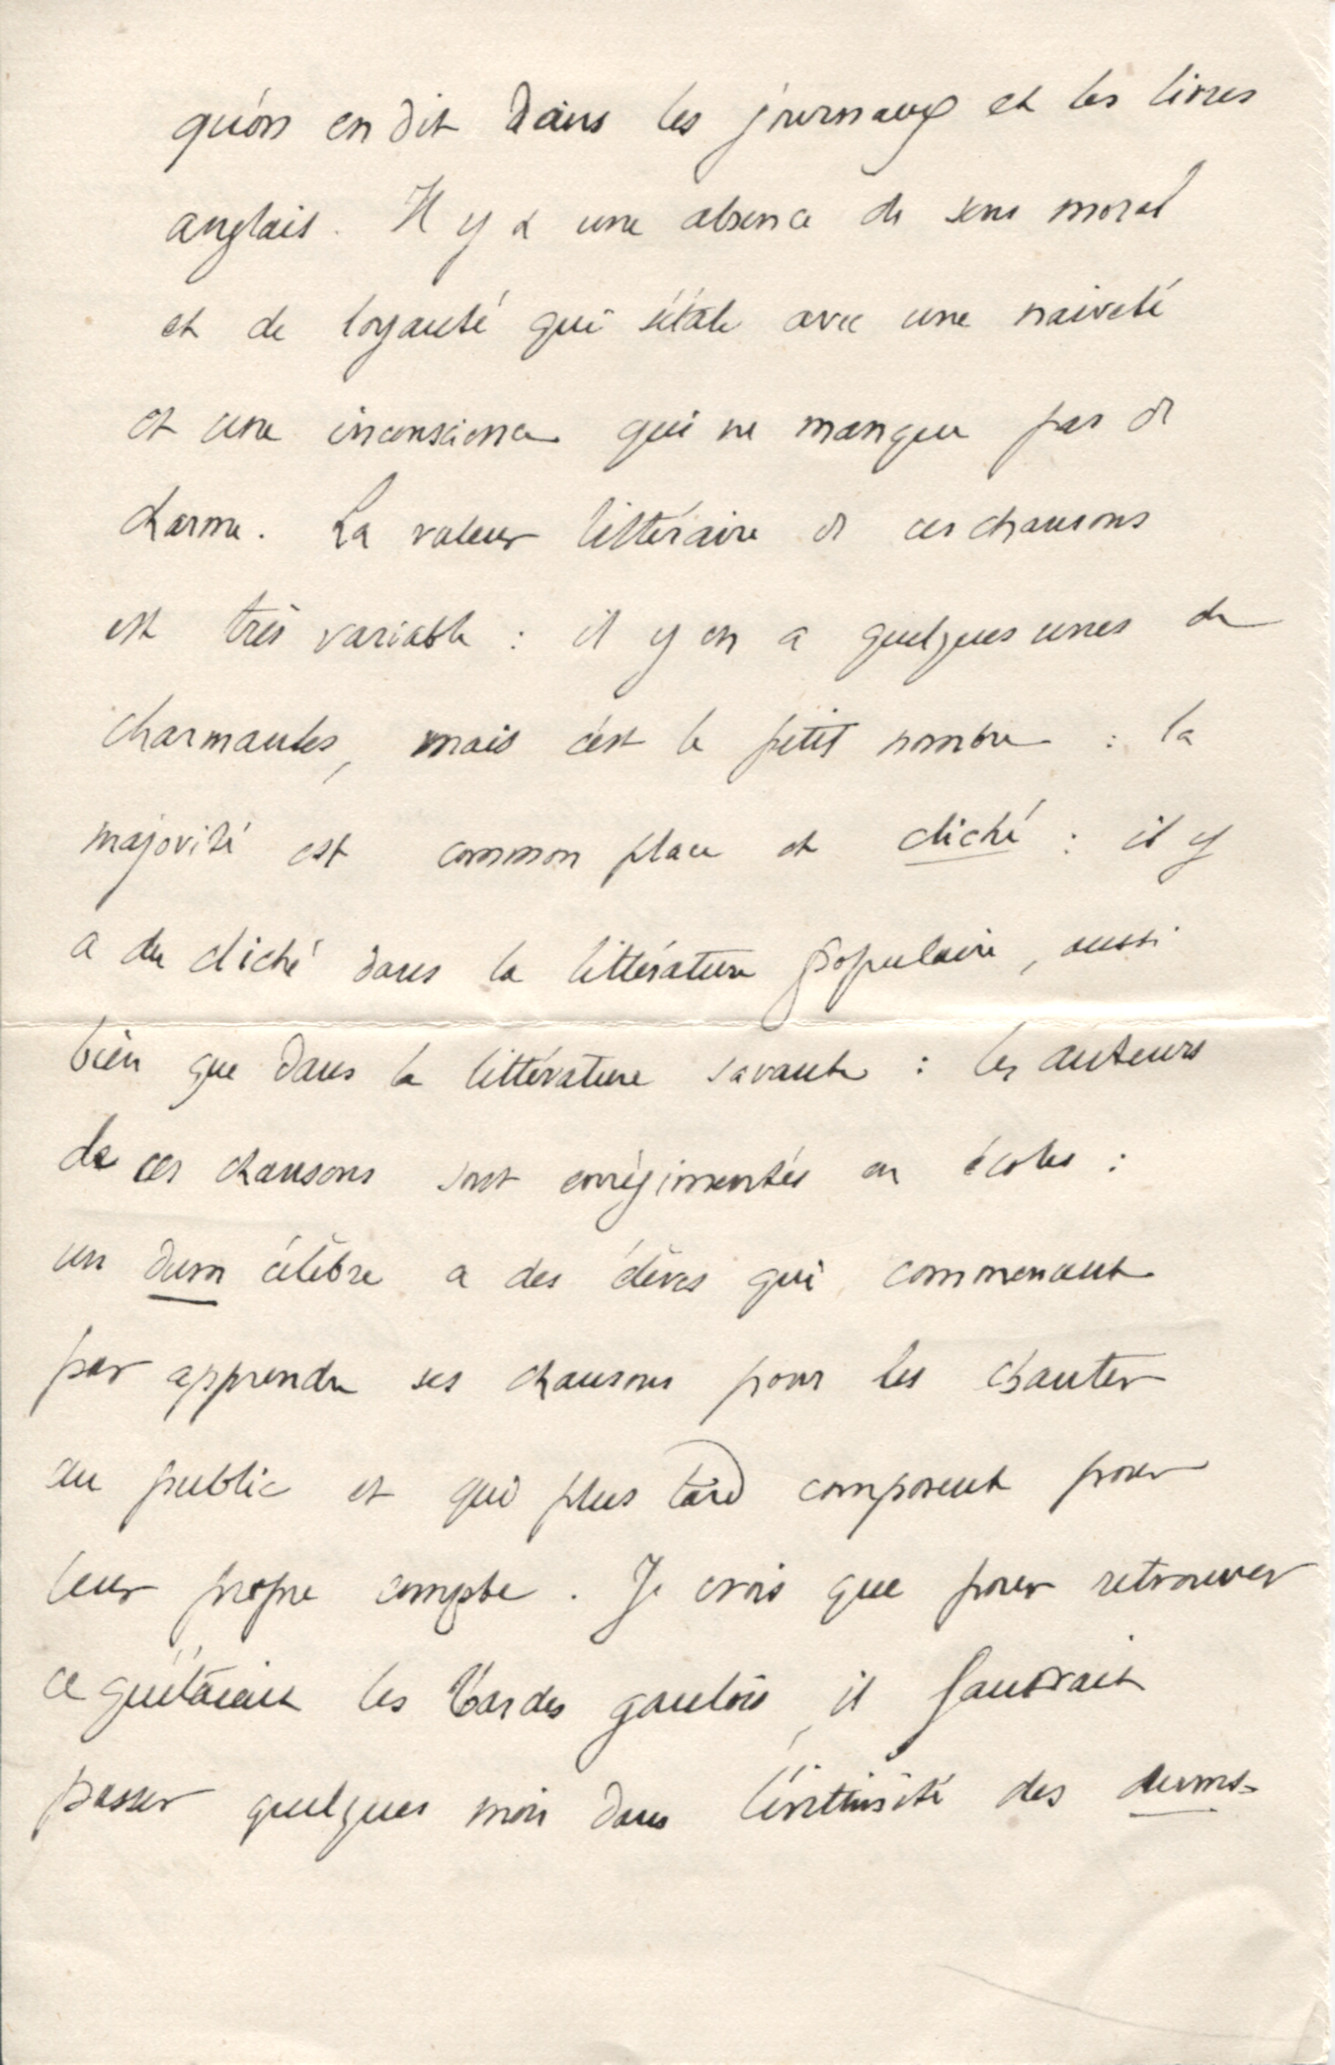 qu'on en dit dans les journaux et les livres
anglais. Il y a une absence de sens moral
et de loyauté qui s'étale avec une naiveté
et une inconscience qui ne manque pas de
charme. La valeur littéraire de ces chansons
est très variable : il y en a quelques unes de
charmantes, mais c'est le petit nombre : la
majorité est common place et cliché : il y
a du cliché dans la littérature populaire, aussi
bien que dans la littérature savante : les auteurs
de ces chansons sont enrégimentés en écoles :
un dum célèbre a des élèves qui commencent
par apprendre ses chansons pour les chanter
au public et qui plus tard composent pour
leur propre compte. Je crois que pour retrouver
ce qu'étaient les bardes gaulois, il faudrait
passer quelques mois dans l'intimité des dums.